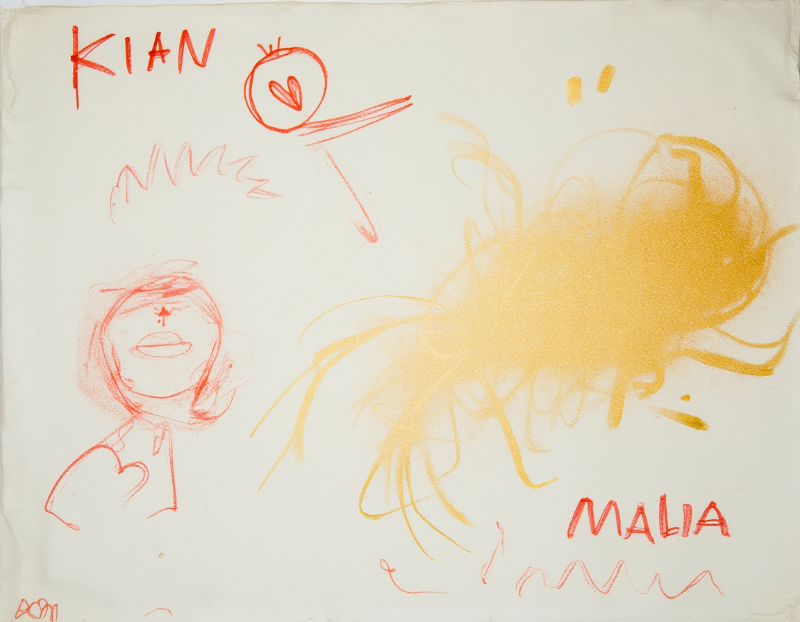 KIAN
MALIA